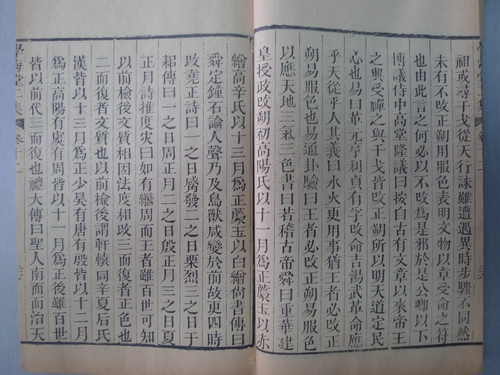 祖或尋干戈從天行誅雖遭遇異時步驟不同然
未有不改正朔用服色表明文物以章受命之符
也由此言之何必以不改爲是邪於是公卿以下
博議侍中高堂隆議曰按自古有文章以來帝王
之興受禪之與干戈皆改正朔所以明天道定民
心也易曰革元亨利貞有孚改命吉湯武革命應
乎天從乎人其義曰水火更用事猶王者必改正
朔易服色也易通卦驗曰王者必改正朔易服色
以應天地三氣三色書曰若稽古帝舜曰重華建
皇授政改朔初高陽氏以十一月爲正薦玉以赤
繒高辛氏以十三月爲正薦玉以白繒尚書傳曰
舜定鐘石論人聲乃及鳥獸咸變於前故更四時
改堯正詩曰一之日觱發二之日栗烈三之日于
耜傳曰一之日周正月二之日殷正月三之日夏
正月詩推度災曰如有繼周而王者雖百世可知
以前檢後文質相因法度相改三而復者正色也
二而復者文質也以前檢後謂軒轅同辛夏后氏
漢皆以十三月爲正少昊有唐有殷皆以十二月
爲正高陽有虞有周皆以十一月爲正後雖百世
皆以前代三而復也禮大傳曰聖人南面而治天
學海堂二集
卷十二